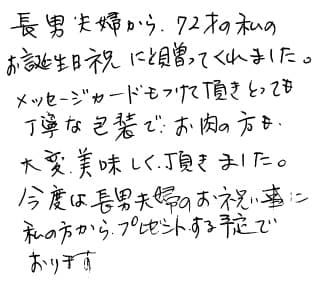 長男夫婦から、72才の私の
お誕生日祝にと贈ってくれました。
メッセージカードもつけて頂きとっても
丁寧な包装で、お肉の方も、
大変、美味しく、頂きました。
今度は長男夫婦のお祝い事に
私の方から、プレゼントする予定で
おります